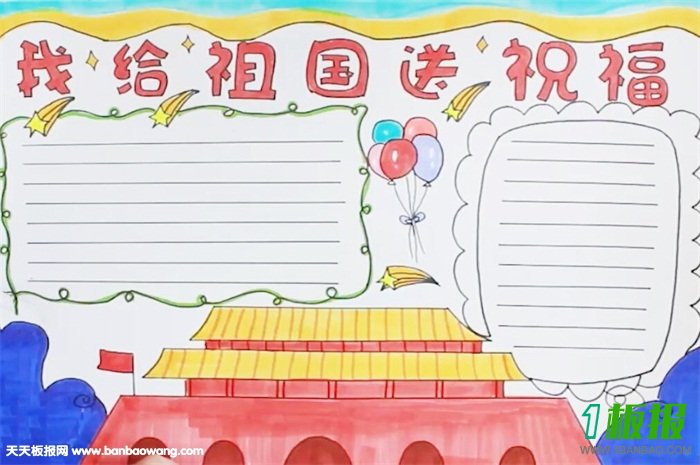 我给祖国送祝福
1板报
1BANBAO.COM
天天板报网 www.banbaowang.com